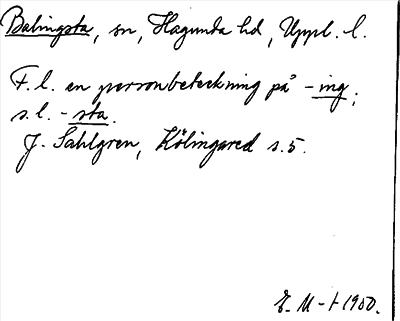 Balingsta, sn, Hagunda hd, Uppl. l.
F. l. en personbeteckning på -ing;
s. l. - sta.
J. Sahlgren, Kölingared s. 5.
E. M-t 1950.